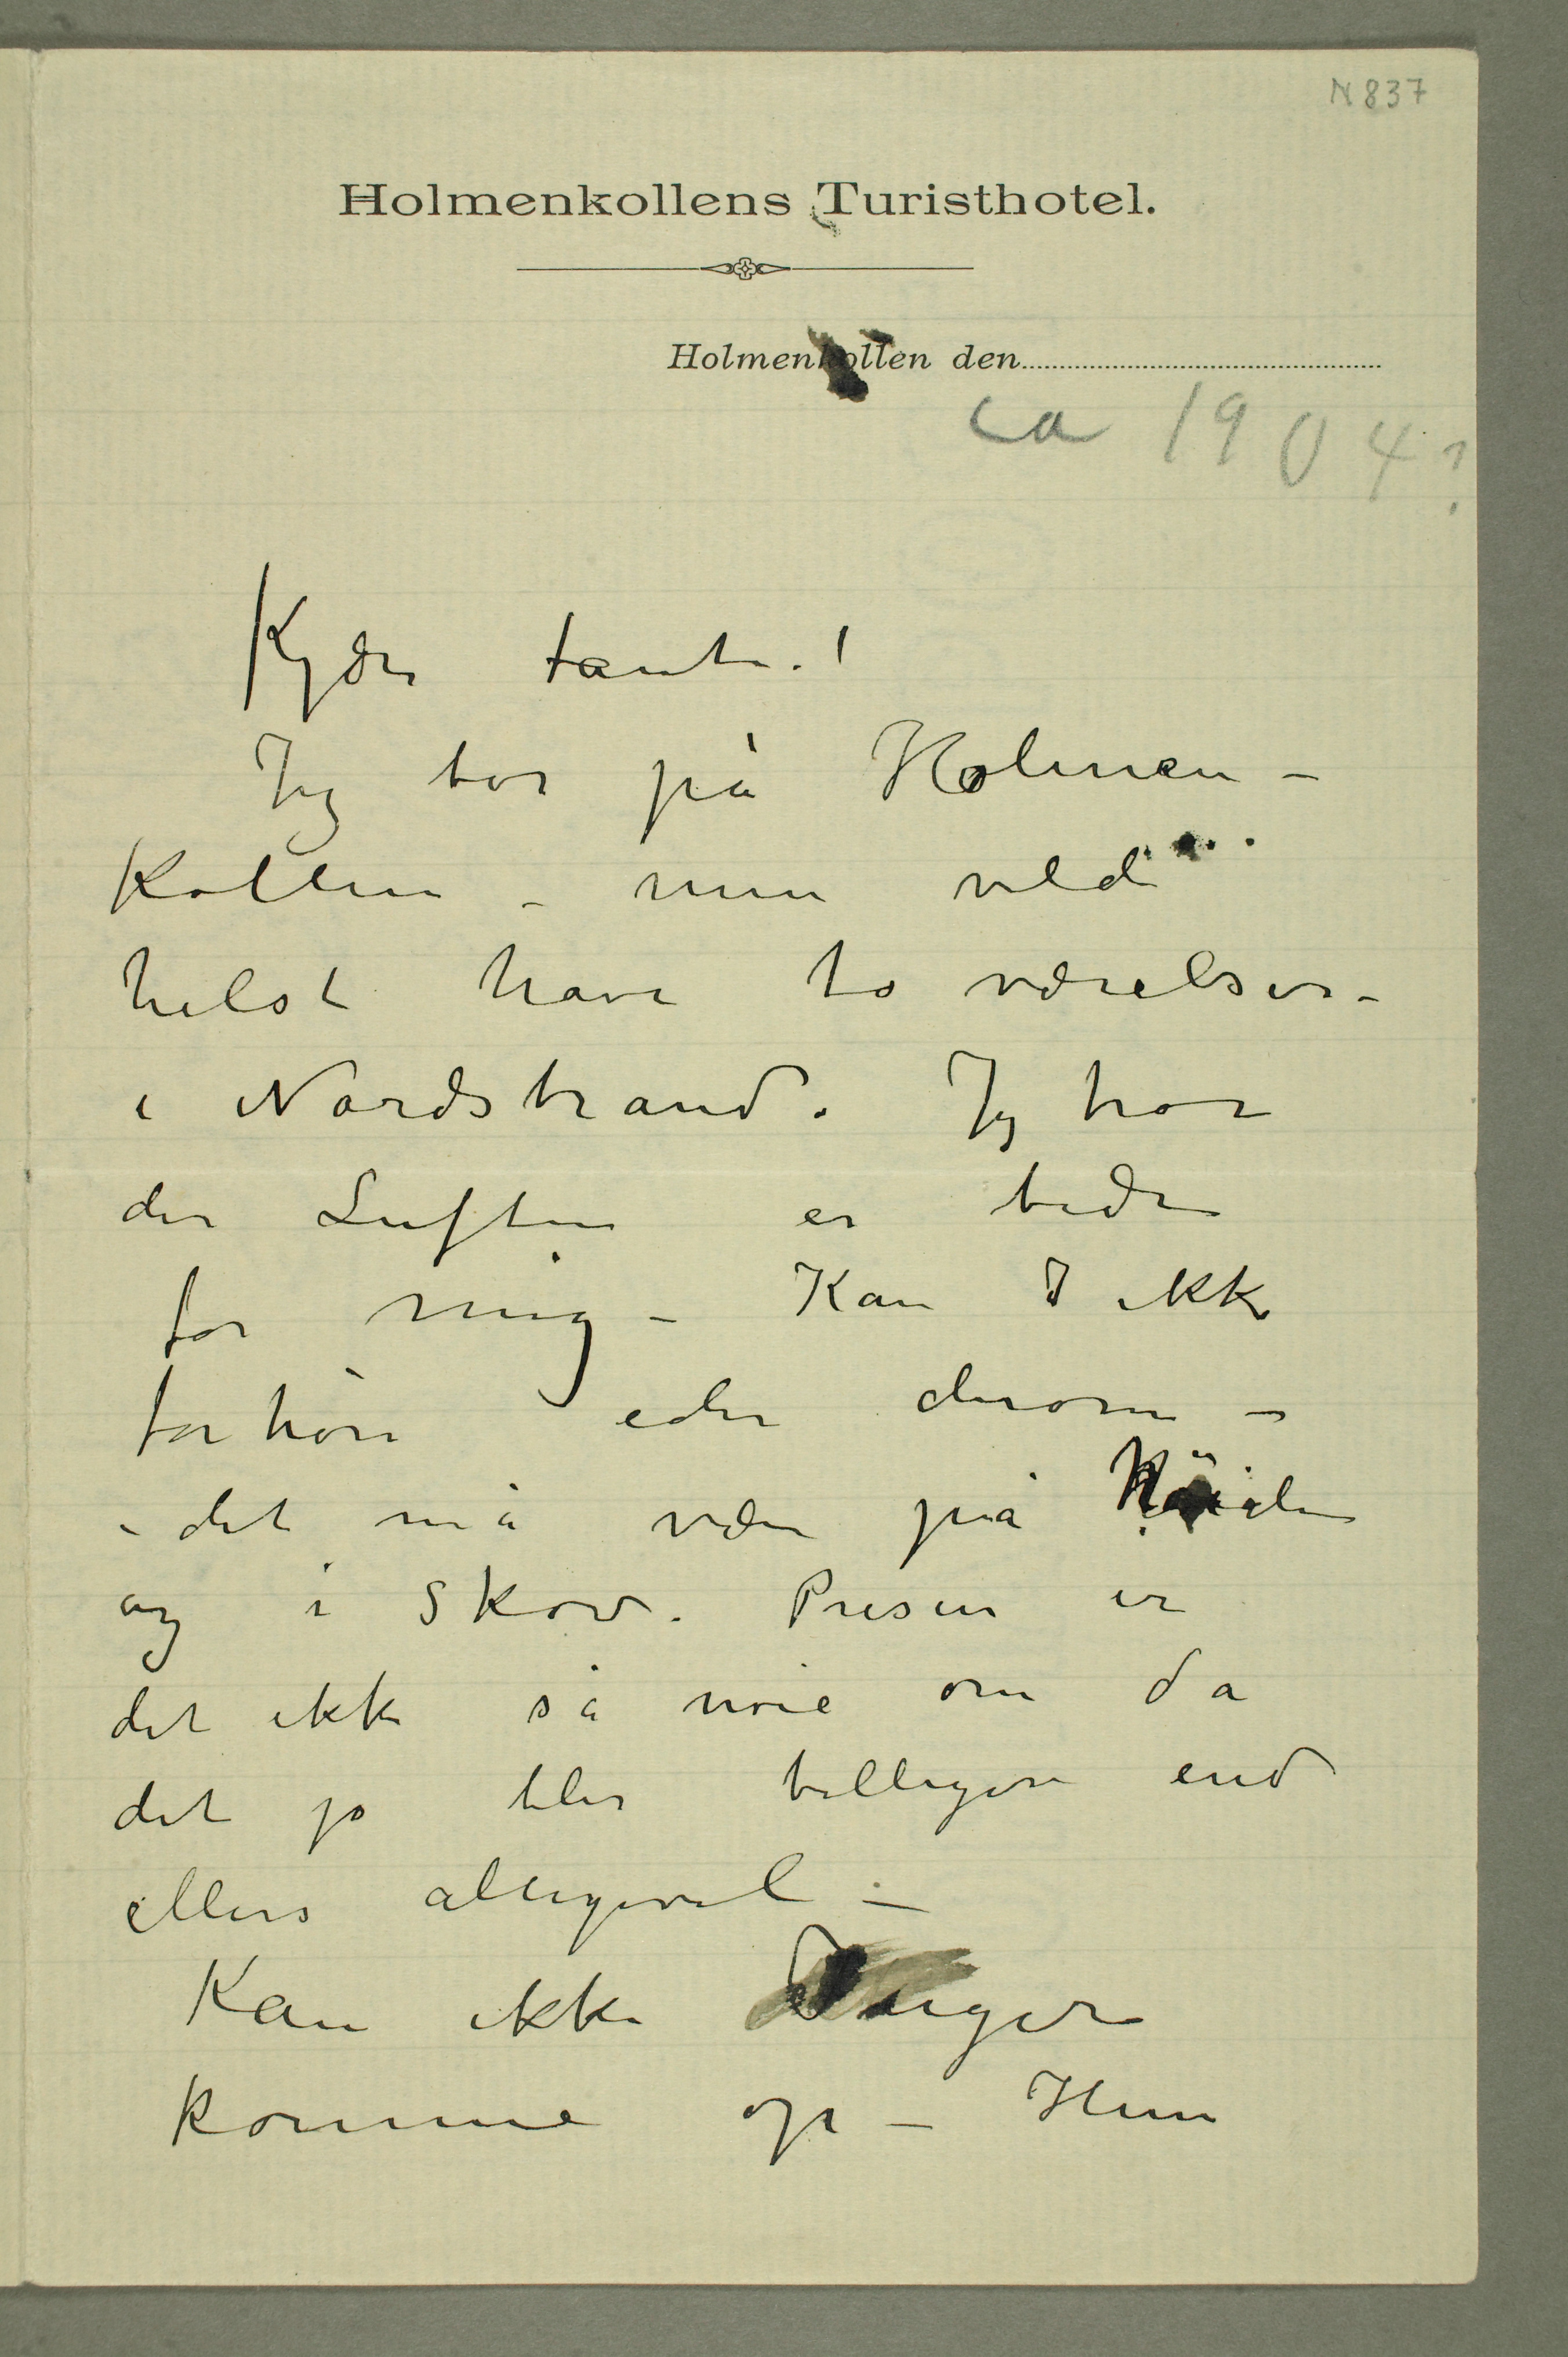 N 837
Holmenkollens Turisthotel.
Holmenkollen den
ca 1904?
Kjære tante.!
Jeg bor på Holmen–
Kollen – men vild
helst have to værelser –
i Nordstrand. Jeg tror
der Luften er bedre
for mig – Kan I ikke
forhøre eder derom –
– det må være på Høiden
og i Skov. Prisen er
det ikke så nøie om da
det jo blir billigere end
ellers alligevel –
Kan ikke Inger
komme op – Hun